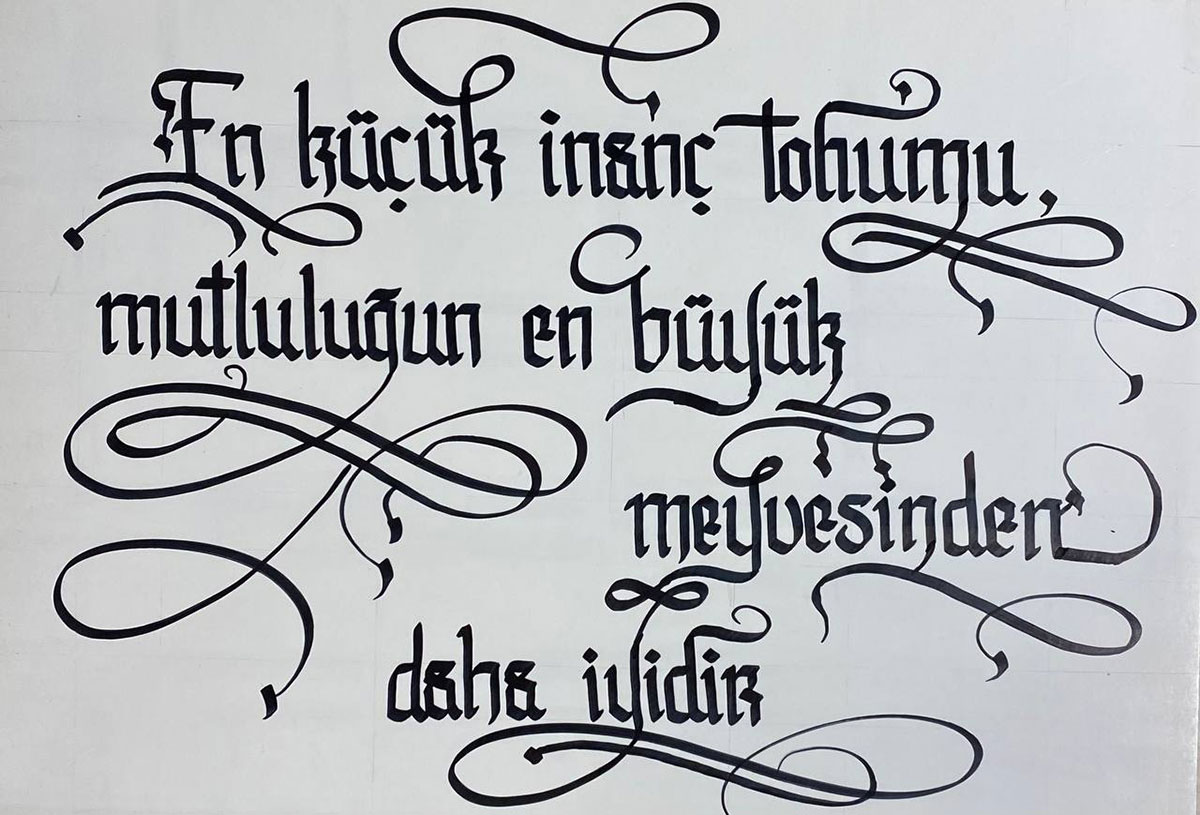 En küçük inanç tohumu,
mutluluğun en büyük
meyvesinden
daha iyidir